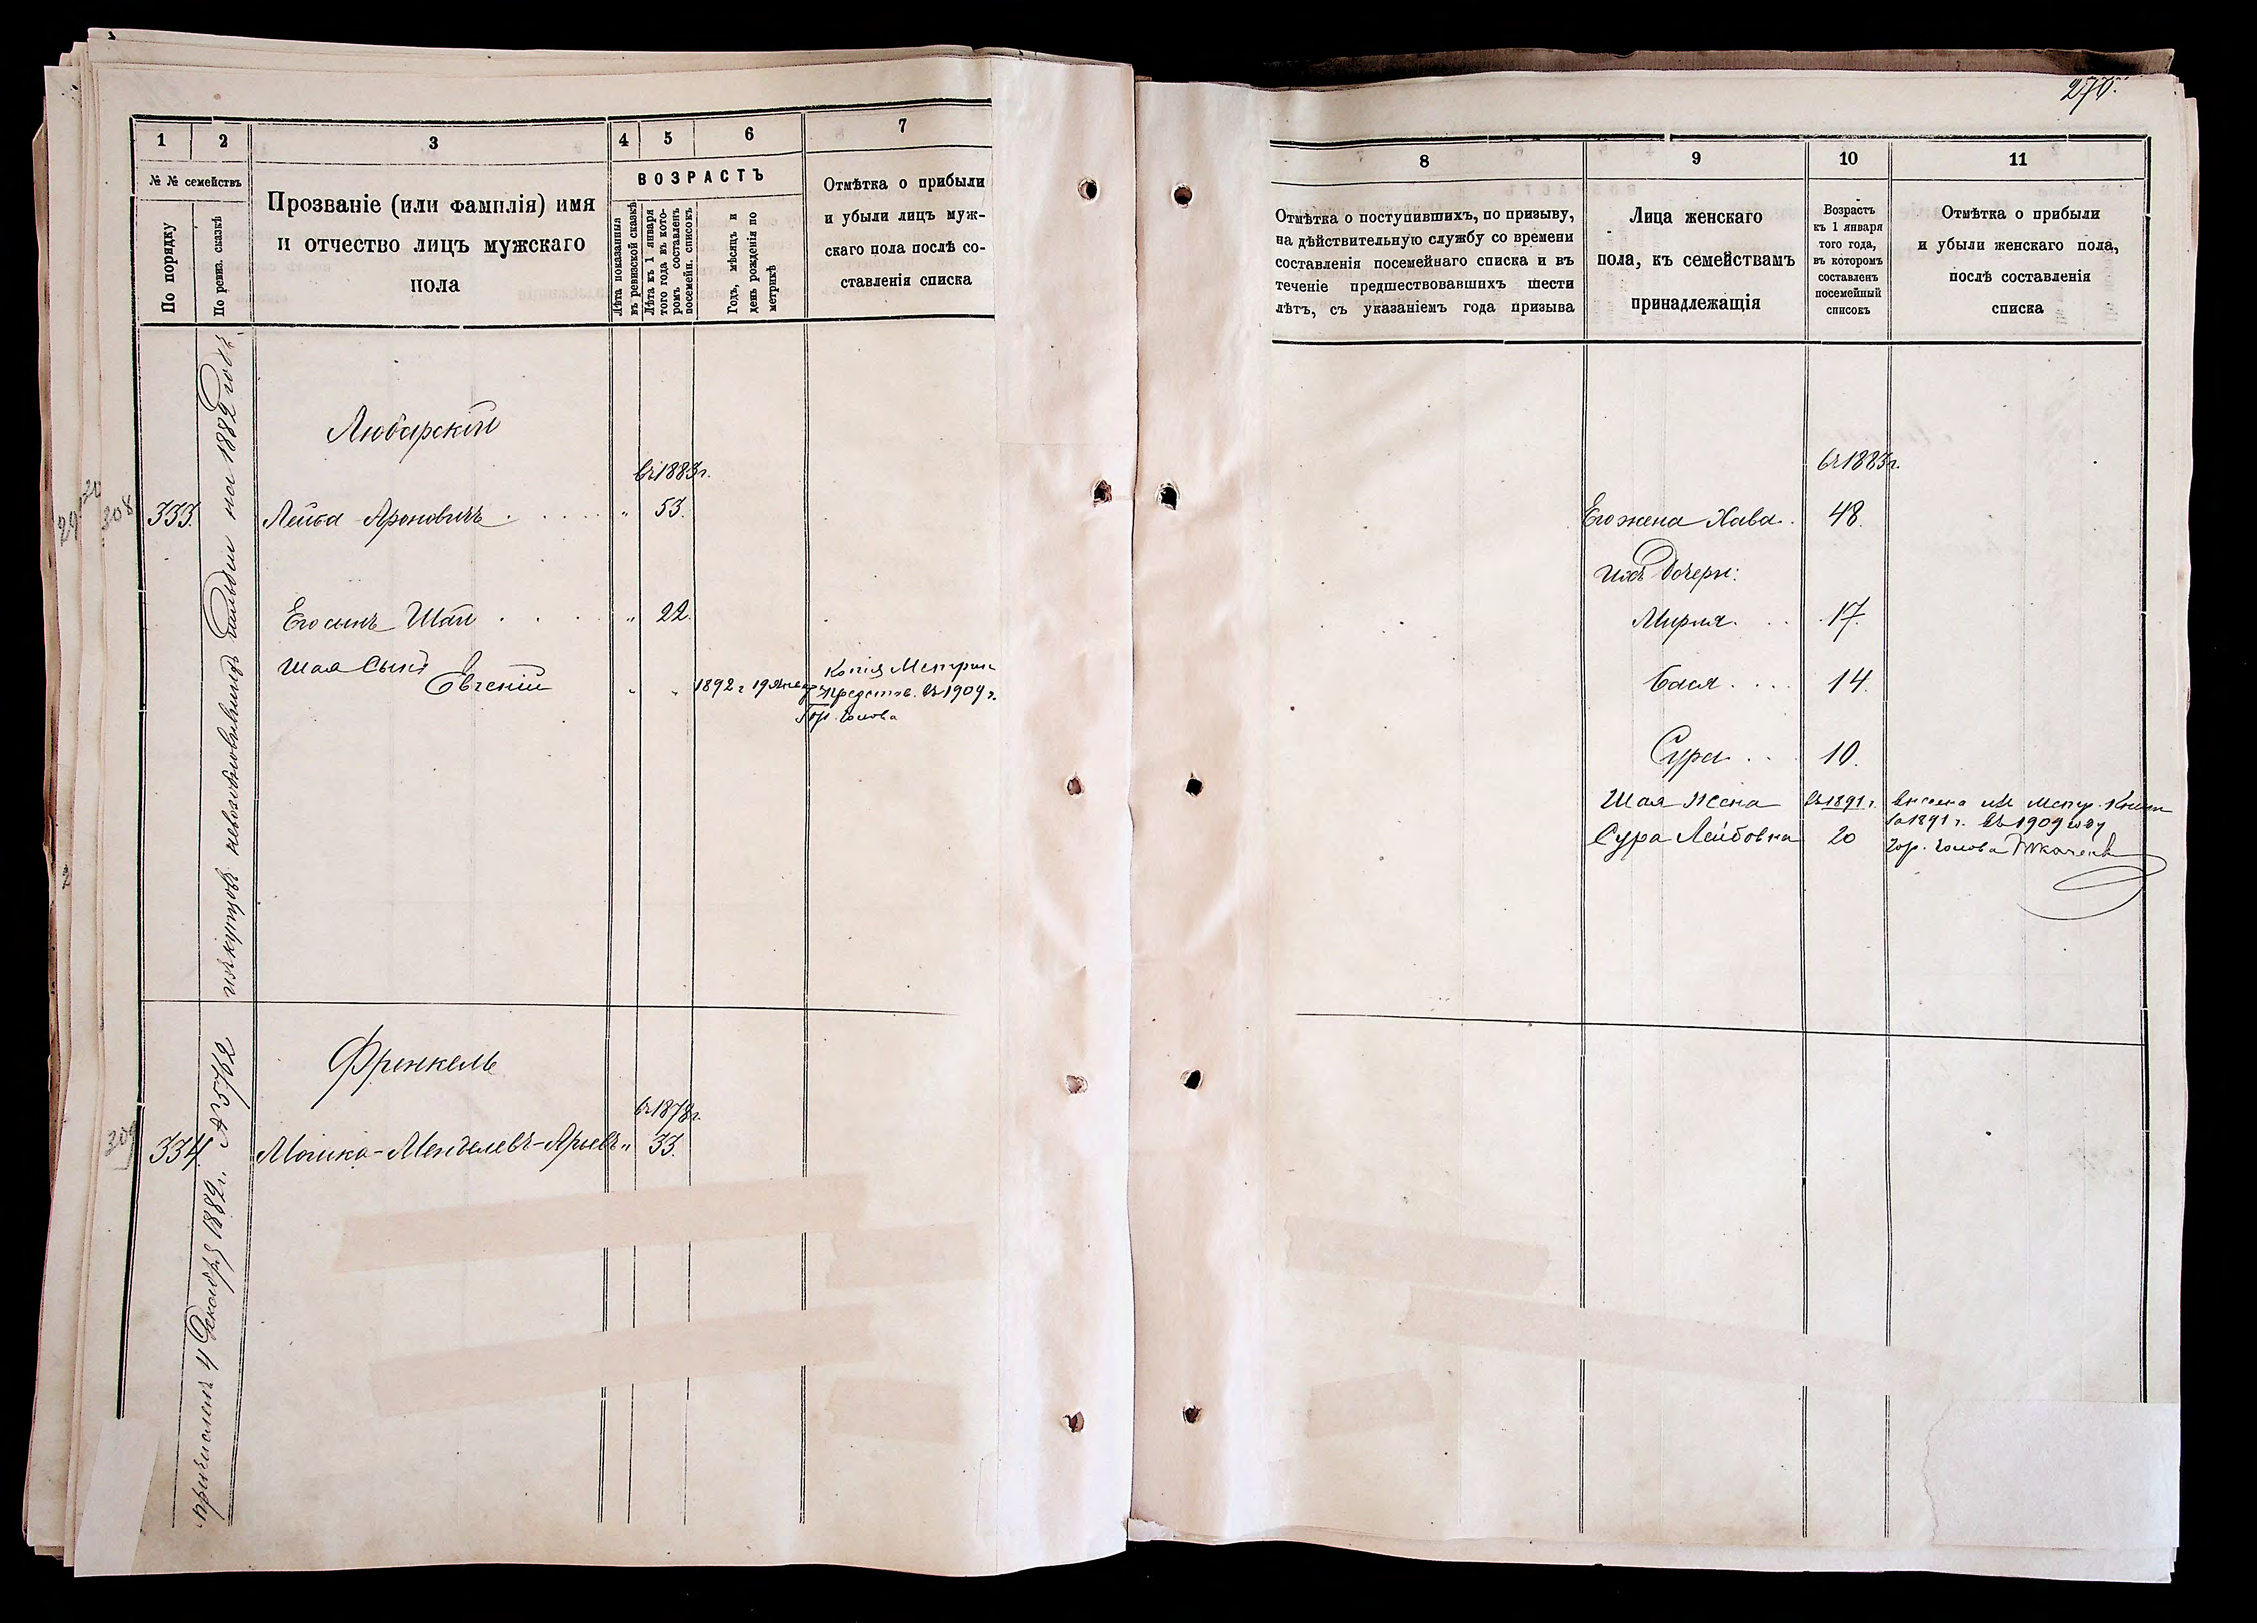 270.
1
2
3
4
5
6
7
№ № семействъ
По порядку
По ревиз. сказкѣ
Прозваніе (или фамилія) имя
и отчество лицъ мужскаго
пола
ВОЗРАСТЪ
Лѣта показанныя
въ ревизской сказкѣ
Лѣта къ 1 января
того года въ кото-
ромъ составленъ
посемейн. списокъ
Годъ, мѣсяцъ и
день рожденія по
метрикѣ
Отмѣтка о прибыли
и убыли лицъ муж-
скаго пола послѣ со-
ставленія списка
изъ купцовъ невозобновившихъ на 1882 годъ
Любарскій
въ 1883 г.
308
333.
Лейба Ароновичъ . . . . . „ 53.
Его сынъ Шая . . . . „ 22.
Шая Сынъ
Евгеній „ „ 1892 г 19 Январ
Копія Метрик
представ. въ 1909 г.
Гор. Голова
Френкель
въ 1878 г.
309
334
Мошка-Менделевъ-Арьевъ „ 33.
причисленъ 4 Декабря 1882 г. № 5762
8
9
10
11
Отмѣтка о поступившихъ, по призыву,
на дѣйствительную службу со времени
составленія посемейнаго списка и въ
теченіе предшествовавшихъ шести
лѣтъ, съ указаніемъ года призыва
Лица женскаго
пола, къ семействамъ
принадлежащія
Возрастъ
къ 1 января
того года,
въ которомъ
составленъ
посемейный
списокъ
Отмѣтка о прибыли
и убыли женскаго пола,
послѣ составленія
списка
въ 1883 г.
Его жена Хава. 48.
Ихъ Дочери:
Мирля. . . 17.
Бася. . . . 14.
Сура . . . 10.
Шая жена въ 1891 г.
Сура Лейбовна 20
внесена из метр. Книги
за 1891 г. въ 1909 году
Гор. Голова